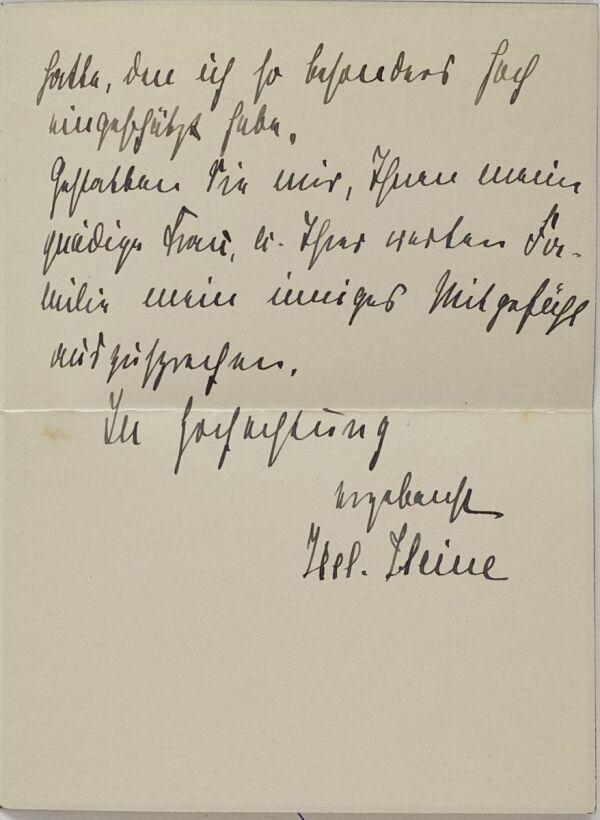 hatte, den ich so besonders hoch
eingeschätzt habe.
Gestatten Sie mir, Ihnen meine
gnädige Frau, u. Ihrer werten Fa-
milie mein inniges Mitgefühl
auszusprechen.
In Hochachtung
ergebenst
Hel. Heine